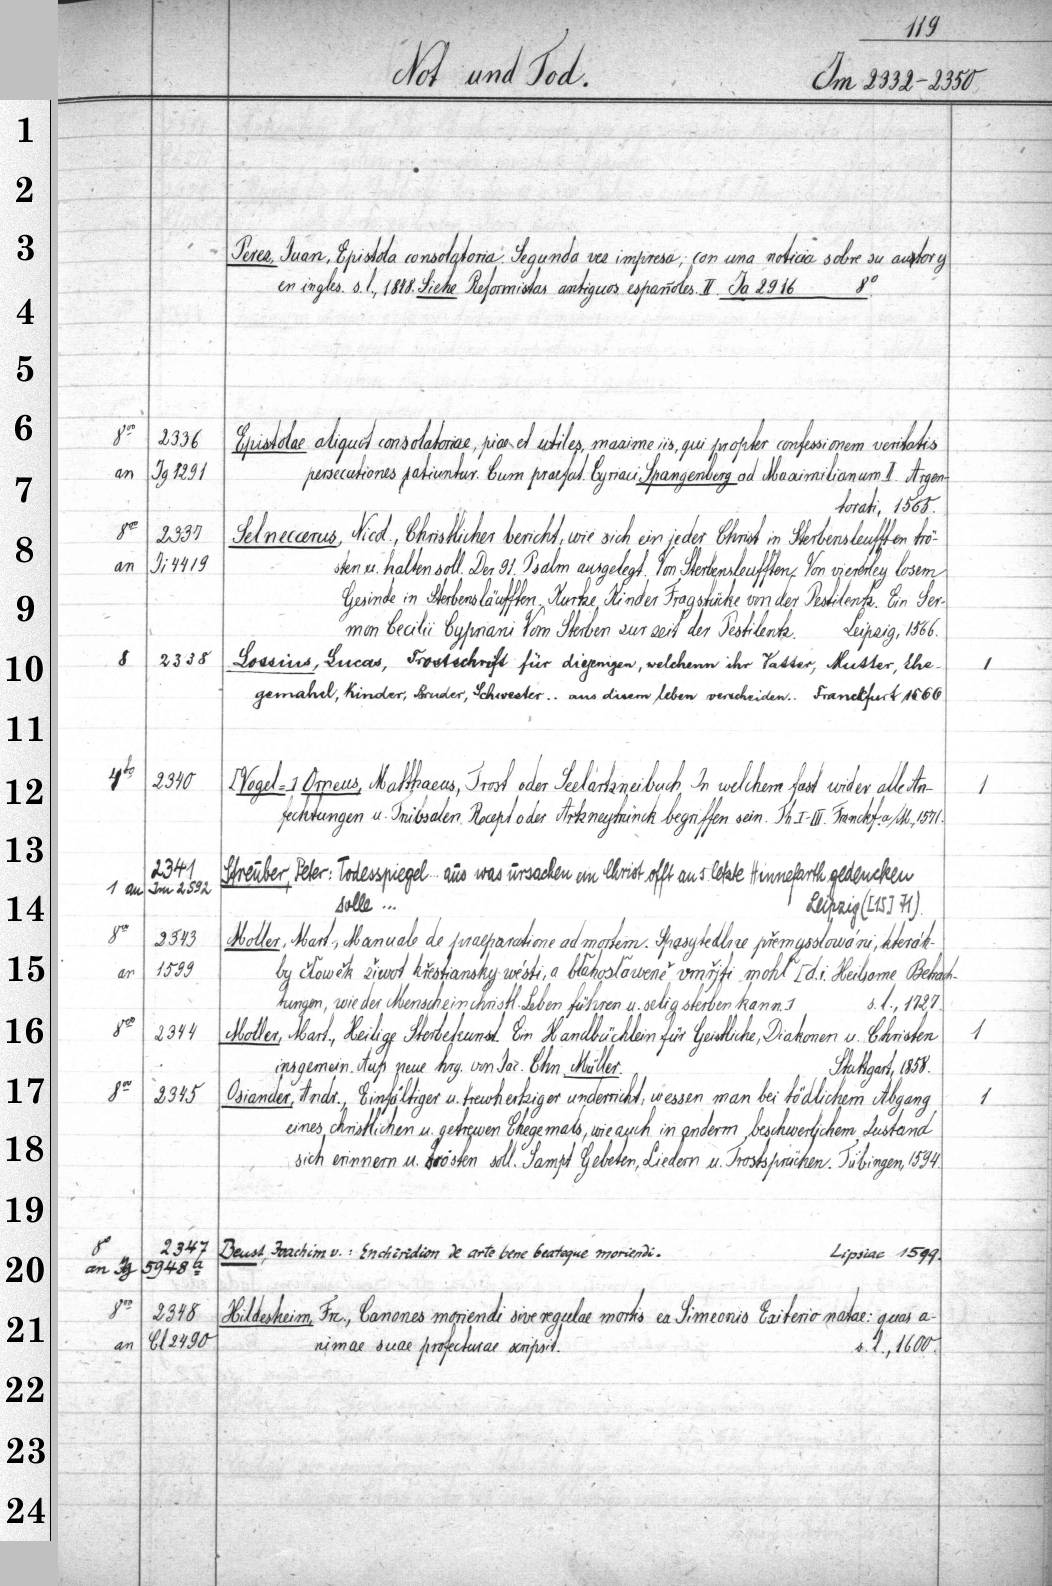 119
Not und Tod. Im 2332-2350
1
2
3 Perez, Juan, Epistola consolatoria. Segunda vez impresa, con una noticia sobre su autor y
en ingles. s.l., 1848. Siehe Reformistas antiguos españoles. II Ja 2916 8°
4
5
6 8vo 2336 Epistolae aliquot consolatoriae, piae et utiles, maxime iis, qui propter confessionem veritatis
an Jg 1291 persecutiones patiuntur. Cum praefat. Cyriaci Spangenberg ad Maximilianum II. Argen-
7 torati, 1565.
8vo 2337 Selneccerus, Nicol., Christlicher bericht, wie sich ein jeder Christ in Sterbensleufften trö-
8 an Ji 4419 sten u. halten soll. Der 91. Psalm ausgelegt. Von Sterbensleufften. Von viererley losem
9 Gesinde in Sterbensläufften. Kurtze Kinder Fragstücke von der Pestilentz. Ein Ser-
mon Cecilii Cypriani Vom Sterben zur zeit der Pestilentz. Leipzig, 1566.
10 8 2338 Lossius, Lucas, Trostschrift für diejenigen, welchenn ihr Vatter, Mutter, Ehe- 1
gemahel, Kinder, Bruder, Schwester.. aus disem leben verscheiden.. Franckfurt 1566
11
12 4to 2340 [Vogel=] Orneus, Matthaeus, Trost oder Seelartzneibuch, In welchem fast wider alle An- 1
fechtungen u. Trübsalen, Recept oder Artzneytrünck begriffen sein. Th. I-III. Franckf. a/M., 1571.
13
2341 Streuber, Peter: Todesspiegel... aus was ursachen ein Christ offt ans letzte Hinnefarth gedencken
14 1 an Im 2592 solle ... Leipzig ([15]71).
8vo 2343 Moller, Mart., Manuale de praeparatione ad mortem. Spasytedlne přemysslowáni, kterák-
15 an 1599 by čłowěk žiwot křestiansky wésti, a błahosławeně vmřjti mohl [d.i. Heilsame Betrach-
tungen, wie der Mensch ein christl. Leben führen u. selig sterben kann.] s.l., 1727.
16 8vo 2344 Moller, Mart., Heilige Sterbekunst. Ein Handbüchlein für Geistliche, Diakonen u. Christen 1
insgemein. Aufs neue hrg. von Jac. Chn. Müller. Stuttgart, 1858.
17 8vo 2345 Osiander, Andr., Einfältiger u. trewhertziger underricht, wessen man bei tödlichem Abgang 1
eines christlichen u. getrewen Ehegemals, wie auch in anderm beschwerlichem Zustand
18 sich erinnern u. trösten soll. Sampt Gebeten, Liedern u. Trostsprüchen. Tübingen, 1594.
19
8° 2347 Beust, Joachim v.: Enchiridion de arte bene beateque moriendi. Lipsiae 1599.
20 an Jg 5948 a
21 8vo 2348 Hildesheim, Fr., Canones moriendi sive regulae mortis ex Simeonis Exiterio natae: quas a-
an Cl 2490 nimae suae profecturae scripsit. s.l., 1600.
22
23
24